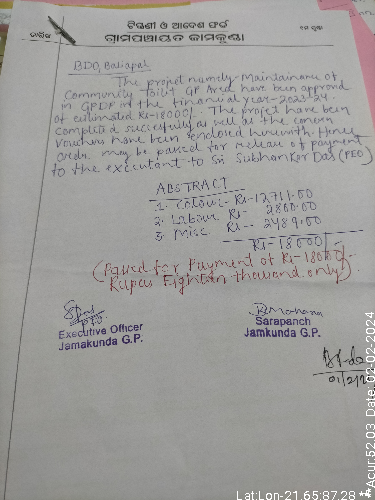 ଟିପ୍ପଣୀ ଓ ଆଦେଶ ଫର୍ଦ୍ଦ
ତାରିଖ
ଗ୍ରାମପଞ୍ଚାୟତ ଜାମକୁଣ୍ଡା
BDO, Baliapal
The projet namely Maintainance of
Community Toilet GP Area have been approved
in GPDP in the financial year-2023-24
of estimated Rs-18000/- The projet have been
completed successfully as well as the concern
vouchers have been enclosed herewith. Hence
order may be passed for release of payment
to the executant to Sri Subhankar Das (PEO)
ABSTRACT
1. Colour- Rs-12711.00
2. Labour Rs- 2800.00
3. Misc Rs-- 2489.00
Rs-18000/-
(Passed for Payment of Rs-18000/-
Rupees Eighteen thousand only)
Executive Officer
Jamakunda G.P.
Sarapanch
Jamkunda G.P.
Lat:Lon-21.65:87.28
**Acur:52.03 Date: 02-02-2024